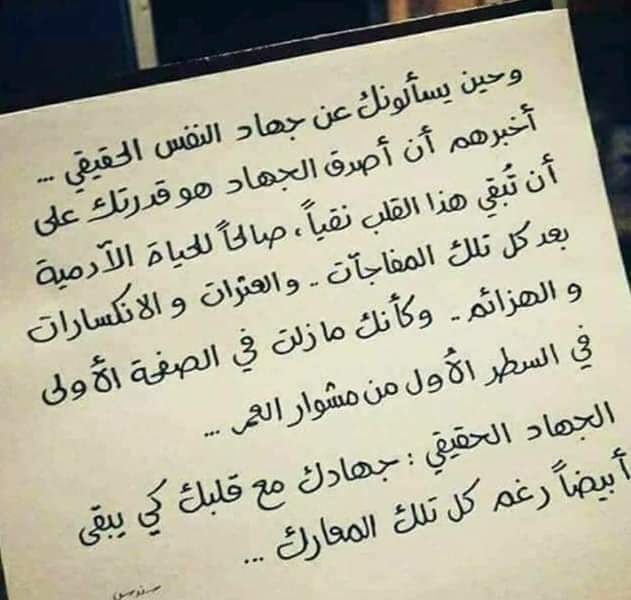 وحين يسألونك عن جهاد النفس الحقيقي ...
أخبرهم أن أصدق الجهاد هو قدرتك على
أن تُبقي هذا القلب نقياً، صالحاً للحياة الآدمية
بعد كل تلك المفاجآت .. والعثرات و الانكسارات
و الهزائم .. وكأنك مازلت في الصفحة الأولى
في السطر الأول من مشوار العمر ...
الجهاد الحقيقي : جهادك مع قلبك كي يبقى
أبيضاً رغم كل تلك المعارك ...